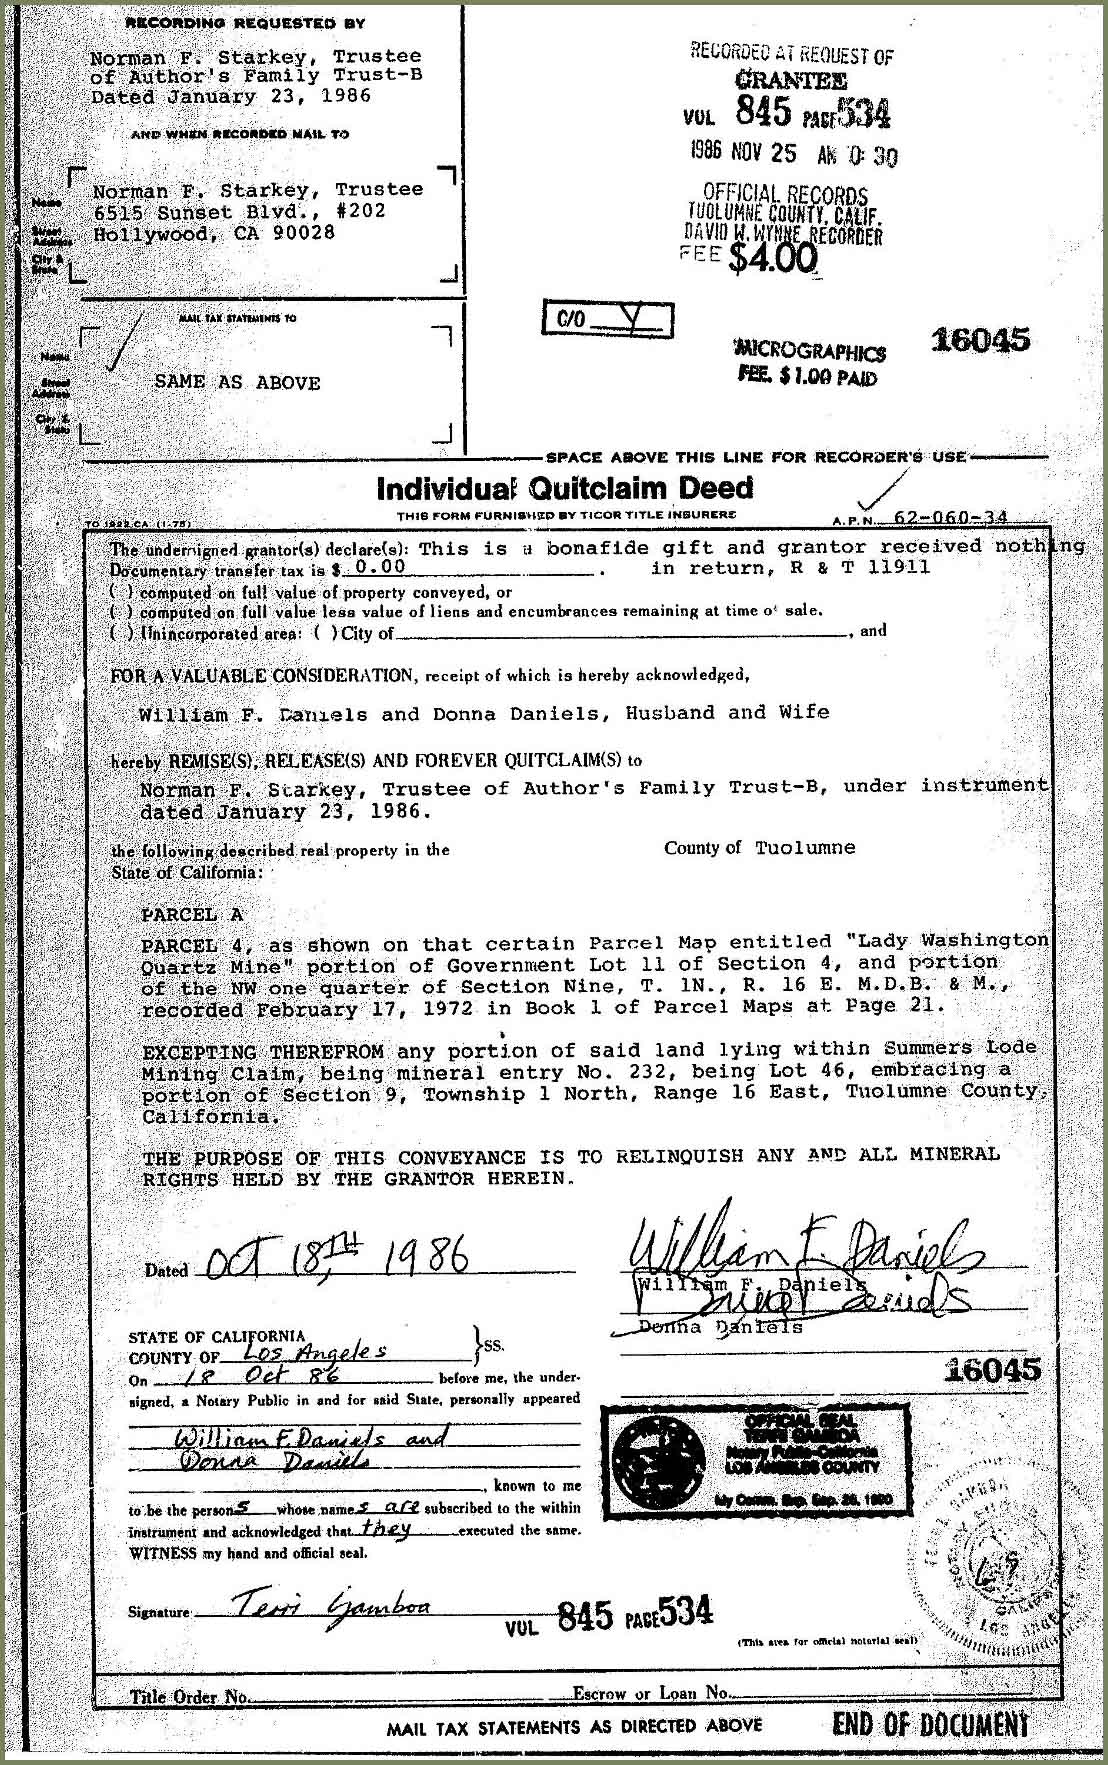 RECORDING REQUESTED BY
Norman F. Starkey, Trustee
of Author's Family Trust-B
Dated January 23, 1986
AND WHEN RECORDED MAIL TO
Name
Street
Address
City &
State
Norman F. Starkey, Trustee
6515 Sunset Blvd., #202
Hollywood, CA 90028
RECORDED AT REQUEST OF
GRANTEE
VOL 845 PAGE 534
1986 NOV 25 AM 0: 30
OFFICIAL RECORDS
TUOLUMNE COUNTY, CALIF.
DAVID W. WYNNE RECORDER
FEE $4.00
MAIL TAX STATEMENTS TO
Name
Street
Address
City &
State
SAME AS ABOVE
C/O Y
MICROGRAPHICS
FEE. $1.00 PAID
16045
SPACE ABOVE THIS LINE FOR RECORDER'S USE
Individual Quitclaim Deed
THIS FORM FURNISHED BY TICOR TITLE INSURERS
TO 1922 CA (1-75)
A.P.N. 62-060-34
The undersigned grantor(s) declare(s): This is a bonafide gift and grantor received nothing
Documentary transfer tax is $ 0.00 . in return, R & T 11911
( ) computed on full value of property conveyed, or
( ) computed on full value less value of liens and encumbrances remaining at time of sale.
( ) Unincorporated area: ( ) City of , and
FOR A VALUABLE CONSIDERATION, receipt of which is hereby acknowledged,
William F. Daniels and Donna Daniels, Husband and Wife
hereby REMISE(S), RELEASE(S) AND FOREVER QUITCLAIM(S) to
Norman F. Starkey, Trustee of Author's Family Trust-B, under instrument
dated January 23, 1986.
the following described real property in the County of Tuolumne
State of California:
PARCEL A
PARCEL 4, as shown on that certain Parcel Map entitled "Lady Washington
Quartz Mine" portion of Government Lot 11 of Section 4, and portion
of the NW one quarter of Section Nine, T. 1N., R. 16 E. M.D.B. & M.,
recorded February 17, 1972 in Book 1 of Parcel Maps at Page 21.
EXCEPTING THEREFROM any portion of said land lying within Summers Lode
Mining Claim, being mineral entry No. 232, being Lot 46, embracing a
portion of Section 9, Township 1 North, Range 16 East, Tuolumne County,
California.
THE PURPOSE OF THIS CONVEYANCE IS TO RELINQUISH ANY AND ALL MINERAL
RIGHTS HELD BY THE GRANTOR HEREIN.
Dated OCT 18TH, 1986
William F. Daniels
William F. Daniels
Donna Daniels
Donna Daniels
STATE OF CALIFORNIA
COUNTY OF Los Angeles }SS.
On 18 Oct 86 before me, the under-
signed, a Notary Public in and for said State, personally appeared
William F. Daniels and
Donna Daniels
, known to me
to be the persons whose names are subscribed to the within
instrument and acknowledged that they executed the same.
WITNESS my hand and official seal.
16045
OFFICIAL SEAL
TERRI GAMBOA
Notary Public-California
LOS ANGELES COUNTY
My Comm. Exp. Sep. 26, 1990
Signature Terri Gamboa
VOL 845 PAGE 534
(This area for official notarial seal)
Title Order No. Escrow or Loan No.
MAIL TAX STATEMENTS AS DIRECTED ABOVE
END OF DOCUMENT